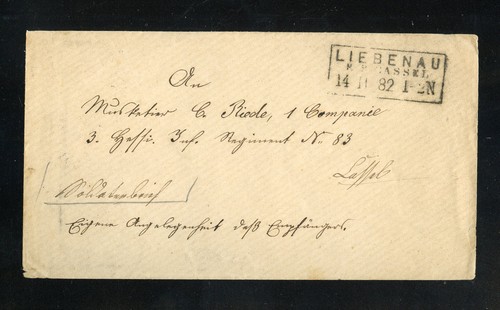 LIEBENAU
R. B. CASSEL
14 11 82 1-2N
An
Musketier C. Riede, 1 Companie
3. Hessi. Inf. Regiment No 83
Cassel
Soldatenbrief
Eigene Angelegenheit deß Empfängers.